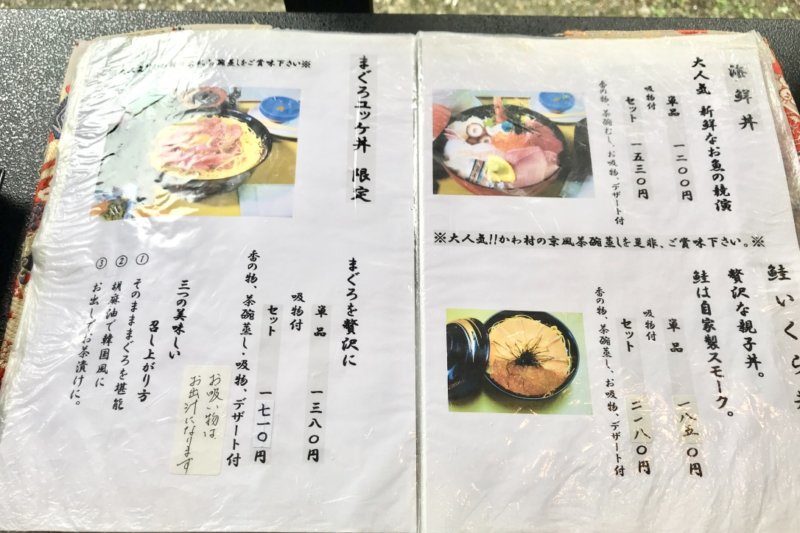 海鮮丼
大人気 新鮮なお魚の競演
単品 一二〇〇円
吸物付
セット 一五三〇円
香の物、茶碗むし、お吸物、デザート付
※大人気!!かわ村の京風茶碗蒸しを是非、ご賞味下さい。※
鮭いくら
贅沢な親子丼。
鮭は自家製スモーク。
単品 一八五〇円
吸物付
セット 二一八〇円
香の物、茶碗蒸し、お吸物、デザート付
茶碗蒸しをご賞味下さい※
まぐろユッケ丼 限定
まぐろを贅沢に
単品 一三八〇円
吸物付
セット 一七一〇円
香の物、茶碗蒸し・吸物、デザート付
お吸い物は
お出汁になります
三つの美味しい
召し上がり方
① そのまままぐろを堪能
② 胡麻油で韓国風に
③ お出しでお茶漬けに。